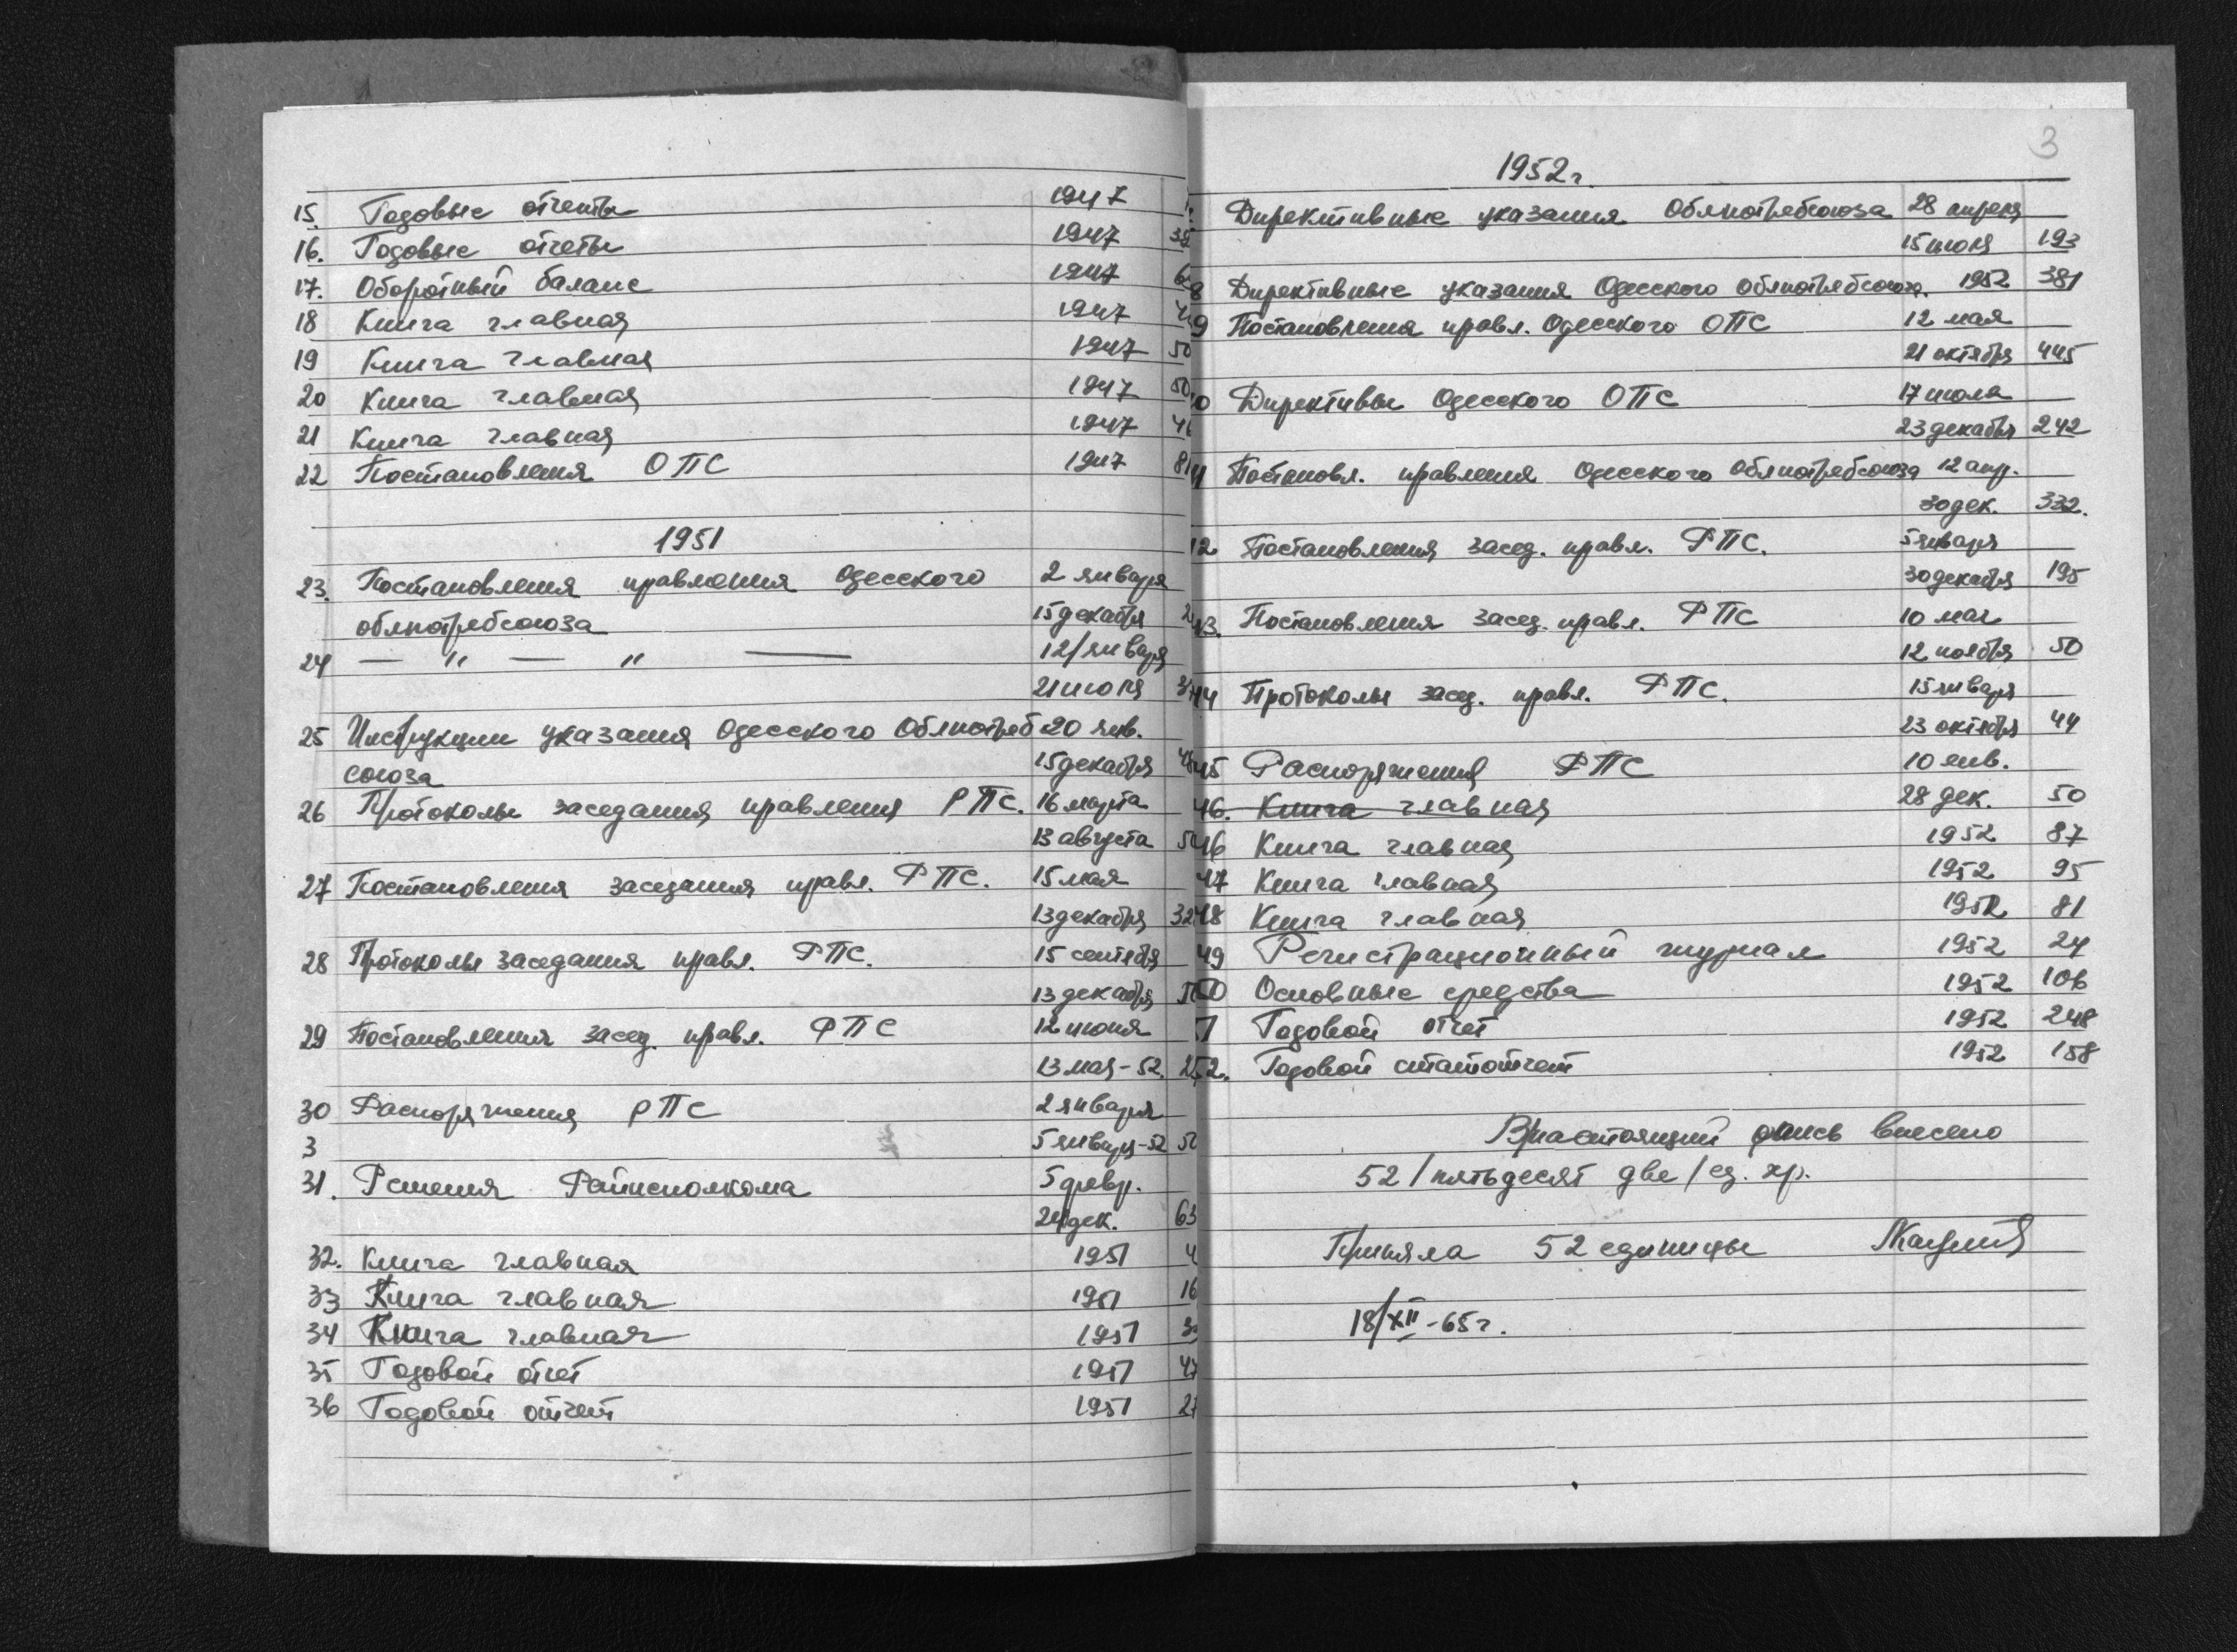 15. Годовые отчеты 1947
16. Годовые отчеты 1947 39
17. Оборотный баланс 1947 6
18 Книга главная 1947 4
19 Книга главная 1947 50
20 Книга главная 1947 50
21 Книга главная 1947 4
22 Постановления ОПС 1947 81
1951
23. Постановления правления Одесского 2 января
облпотребсоюза 15 декабря 2
24 — " — " — 12/января
21 июня 3
25 Инструкции указания Одесского Облпотреб- 20 янв.
союза 15 декабря 4
26 Протоколы заседания правления РПС. 16 марта
13 августа 50
27 Постановления заседания правл. РПС. 15 мая
13 декабря 32
28 Протоколы заседания правл. РПС. 15 сентября
13 декабря
29 Постановления засед. правл. РПС 12 июня
13 мая-52. 2
30 Распоряжения РПС 2 января
3 5 января-52 50
31. Решения Райисполкома 5 февр.
24 дек. 63
32. Книга главная 1951 4
33 Книга главная 1951 16
34 Книга главная 1951 3
35 Годовой отчет 1951 47
36 Годовой отчет 1951 27
3
1952г.
Директивные указания Облпотребсоюза 28 апреля
15 июня 193
8 Директивные указания Одесского Облпотребсоюза. 1952 381
9 Постановления правл. Одесского ОПС 12 мая
21 октября 445
0 Директивы Одесского ОПС 17 июля
23 декабря 242
41 Постановл. правления Одесского Облпотребсоюза 12 апр.
30 дек. 332.
12. Постановления засед. правл. РПС. 5 января
30 декабря 195
43. Постановления засед. правл. РПС 10 мая
12 ноября 50
44 Протоколы засед. правл. РПС. 15 января
23 октября 44
45 Распоряжения РПС 10 янв.
46. Книга главная 28 дек. 50
46 Книга главная 1952 87
47 Книга главная 1952 95
48 Книга главная 1952 81
49 Регистрационный журнал 1952 24
50 Основные средства 1952 106
51 Годовой отчет 1952 248
52. Годовой статотчет 1952 158
В/настоящий опись внесено
52 /пятьдесят две/ ед. хр.
Приняла 52 единицы
18/XII-65г.